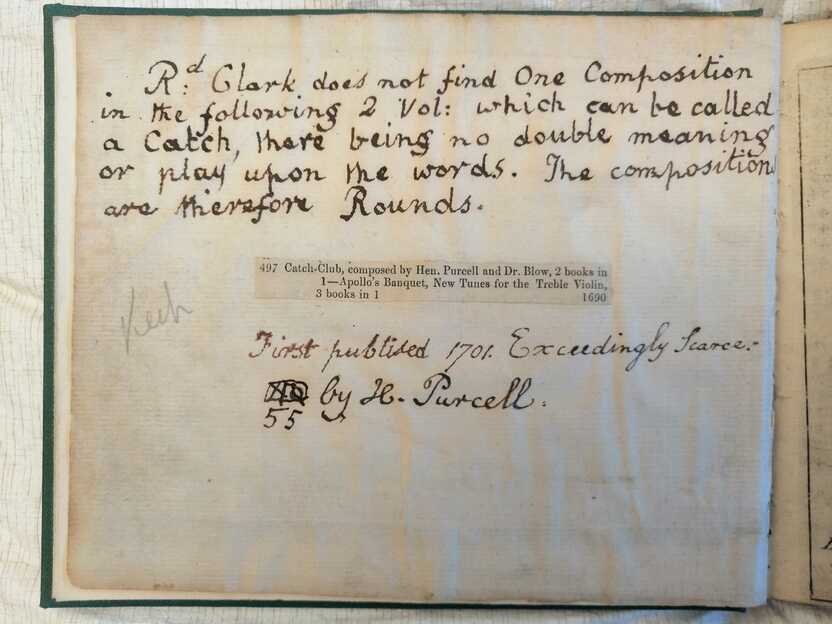 R:d Clark does not find One Composition
in the following 2 Vol: which can be called
a Catch, there being no double meaning
or play upon the words. The composition
are therefore Rounds.
497 Catch-Club, composed by Hen. Purcell and Dr. Blow, 2 books in
1—Apollo's Banquet, New Tunes for the Treble Violin,
3 books in 1 1690
First publised 1701. Exceedingly Scarce.
by H. Purcell.
55